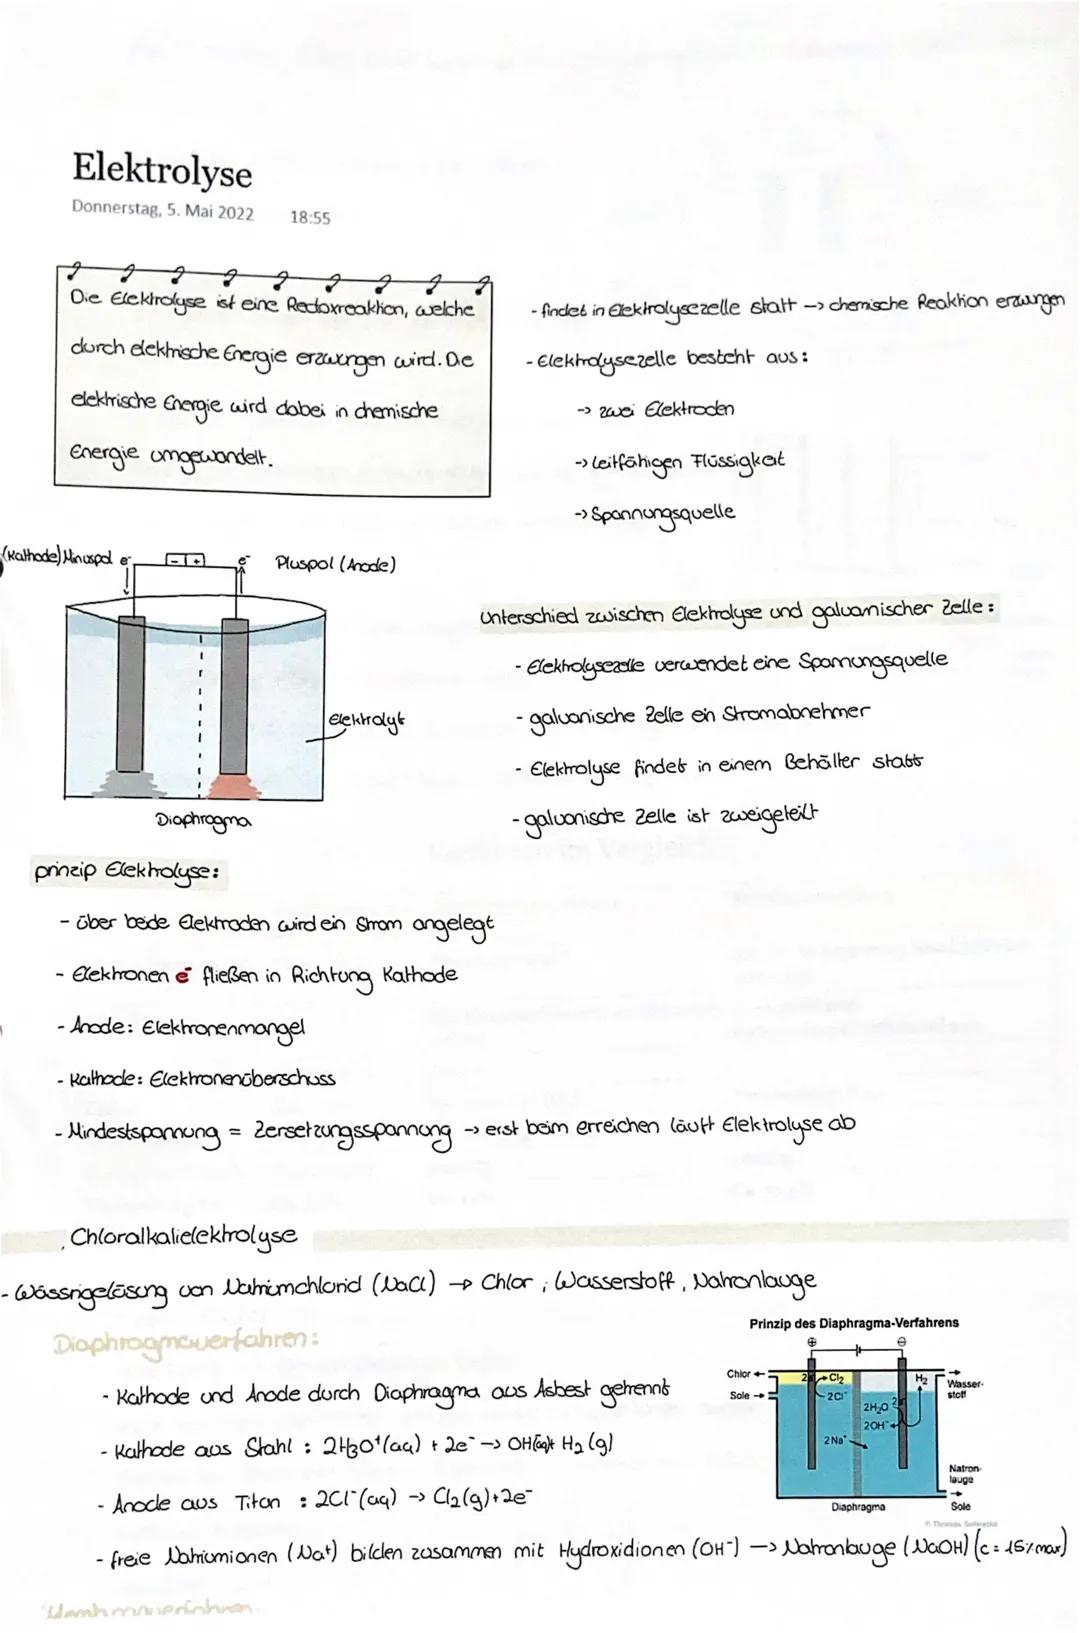 Elektrolyse
Donnerstag, 5. Mai 2022 18:55
Die Elektrolyse ist eine Redoxreaktion, welche
durch elektrische Energie erzwungen wird. Die
elektrische Energie wird dabei in chemische
Energie umgewandelt.
- findet in Elektrolysezelle statt -> chemische Reaktion erzwungen
- Elektrolysezelle besteht aus:
-> zwei Elektroden
-> leitfähigen Flüssigkeit
-> Spannungsquelle
(Kathode) Minuspol e⁻ - + e⁻ Pluspol (Anode)
Elektrolyt
Diaphragma
Unterschied zwischen Elektrolyse und galvanischer Zelle:
- Elektrolysezelle verwendet eine Spannungsquelle
- galvanische Zelle ein Stromabnehmer
- Elektrolyse findet in einem Behälter statt
- galvanische Zelle ist zweigeteilt
prinzip Elektrolyse:
- über beide Elektroden wird ein Strom angelegt
- Elektronen e⁻ fließen in Richtung Kathode
- Anode: Elektronenmangel
- Kathode: Elektronenüberschuss
- Mindestspannung = Zersetzungsspannung -> erst beim erreichen läuft Elektrolyse ab
Chloralkalielektrolyse
- Wässrigelösung von Natriumchlorid (NaCl) -> Chlor, Wasserstoff, Natronlauge
Diaphragmaverfahren:
- Kathode und Anode durch Diaphragma aus Asbest getrennt
- Kathode aus Stahl : 2H3O⁺(aq) + 2e⁻ -> OH(aq)+ H₂(g)
- Anode aus Titan : 2Cl⁻(aq) -> Cl₂(g)+2e⁻
- freie Natriumionen (Na+) bilden zusammen mit Hydroxidionen (OH⁻) -> Natronlauge (NaOH) (c= 15% max)
Prinzip des Diaphragma-Verfahrens
⊕ ⊖
Chlor ← Cl₂ H₂ → Wasser-
stoff
Sole → 2Cl⁻
2H₂O
2OH⁻
2 Na⁺
Natron-
lauge
→
Diaphragma Sole